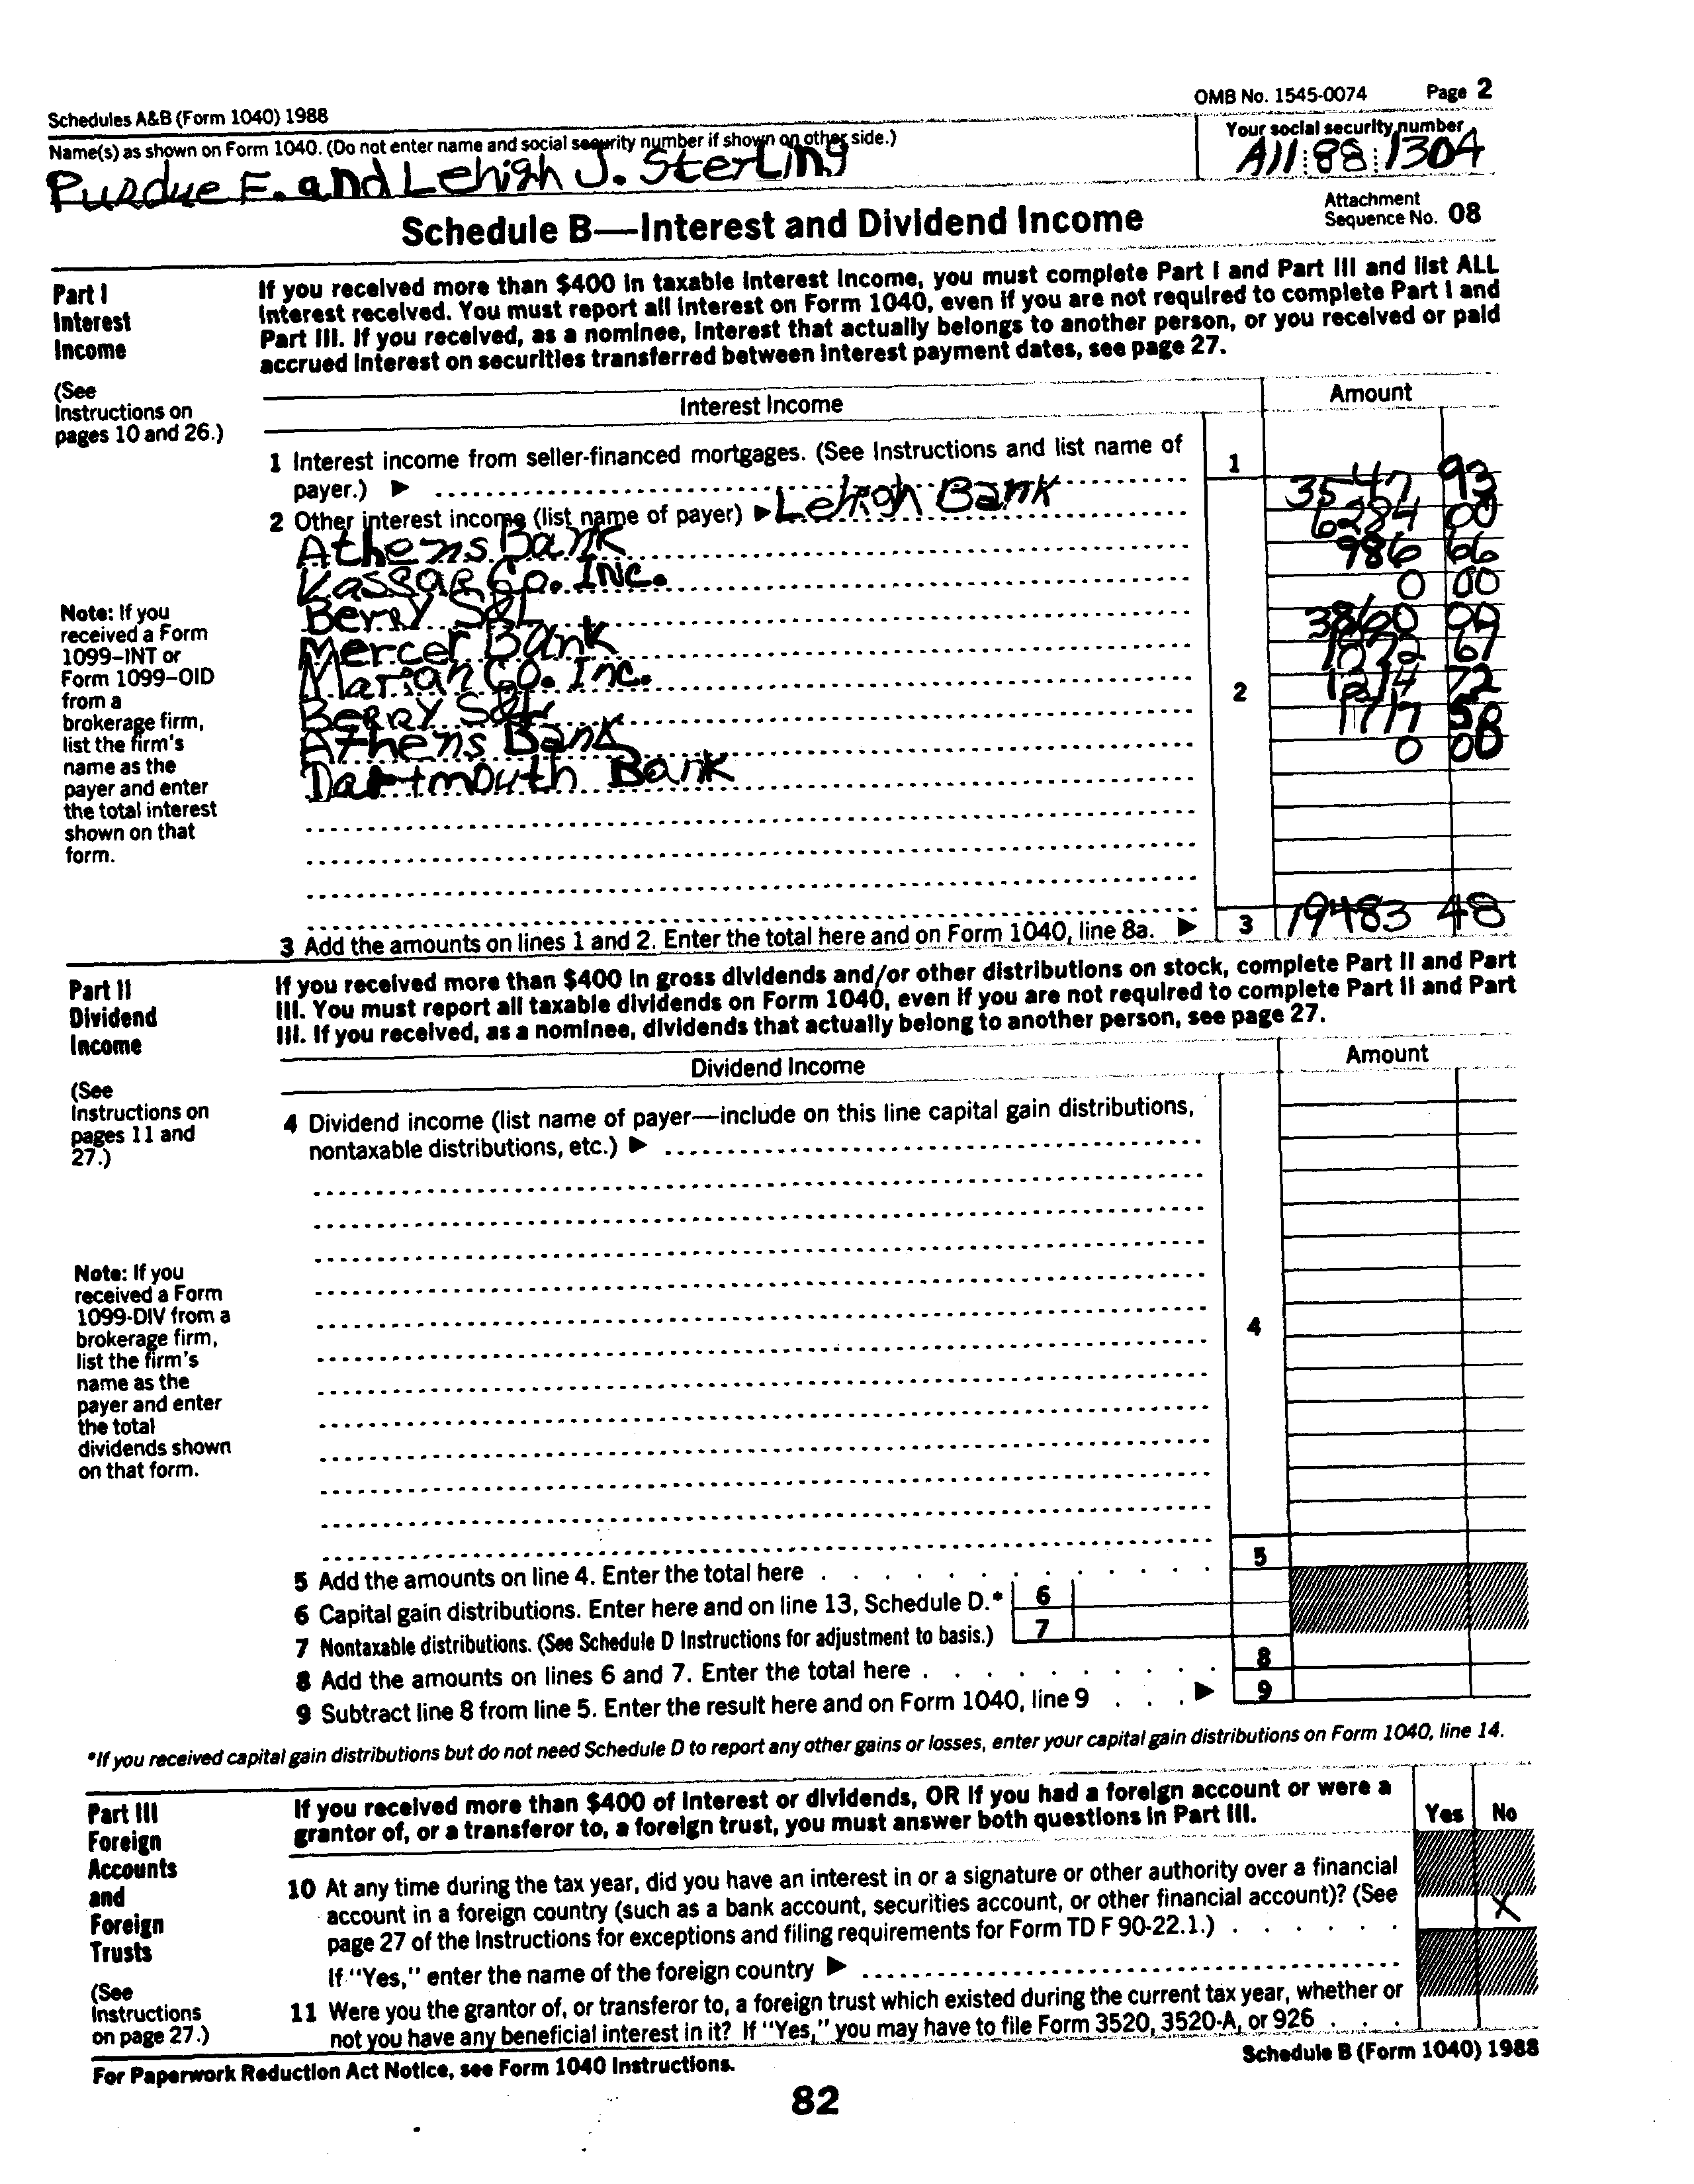 Schedules A&B (Form 1040) 1988
OMB No. 1545-0074 Page 2
Name(s) as shown on Form 1040. (Do not enter name and social security number if shown on other side.)
Your social security number
Purdue E. and Lehigh J. Sterling
A11 88 1304
Schedule B—Interest and Dividend Income
Attachment
Sequence No. 08
Part I
Interest
Income
If you received more than $400 in taxable interest income, you must complete Part I and Part III and list ALL
interest received. You must report all interest on Form 1040, even if you are not required to complete Part I and
Part III. If you received, as a nominee, interest that actually belongs to another person, or you received or paid
accrued interest on securities transferred between interest payment dates, see page 27.
(See
Instructions on
pages 10 and 26.)
Interest Income
Amount
1 Interest income from seller-financed mortgages. (See Instructions and list name of
payer.) ▶
1
2 Other interest income (list name of payer) ▶ Lehigh Bank 3547 93
Athens Bank 6284 00
Vassar Co. Inc. 986 66
Berry S&L 0 00
Mercer Bank 3860 00
Marian Co. Inc. 1872 67
Berry S&L 1214 72
Athens Bank 1717 50
Dartmouth Bank 0 00
2
Note: If you
received a Form
1099–INT or
Form 1099–OID
from a
brokerage firm,
list the firm's
name as the
payer and enter
the total interest
shown on that
form.
3 Add the amounts on lines 1 and 2. Enter the total here and on Form 1040, line 8a. ▶ 3 19483 48
Part II
Dividend
Income
If you received more than $400 in gross dividends and/or other distributions on stock, complete Part II and Part
III. You must report all taxable dividends on Form 1040, even if you are not required to complete Part II and Part
III. If you received, as a nominee, dividends that actually belong to another person, see page 27.
(See
Instructions on
pages 11 and
27.)
Dividend Income
Amount
4 Dividend income (list name of payer—include on this line capital gain distributions,
nontaxable distributions, etc.) ▶
4
Note: If you
received a Form
1099-DIV from a
brokerage firm,
list the firm's
name as the
payer and enter
the total
dividends shown
on that form.
5 Add the amounts on line 4. Enter the total here . . . . . . . . . . . . 5
6 Capital gain distributions. Enter here and on line 13, Schedule D.* 6
7 Nontaxable distributions. (See Schedule D Instructions for adjustment to basis.) 7
8 Add the amounts on lines 6 and 7. Enter the total here . . . . . . . . . . 8
9 Subtract line 8 from line 5. Enter the result here and on Form 1040, line 9 . . . ▶ 9
*If you received capital gain distributions but do not need Schedule D to report any other gains or losses, enter your capital gain distributions on Form 1040, line 14.
Part III
Foreign
Accounts
and
Foreign
Trusts
(See
Instructions
on page 27.)
If you received more than $400 of interest or dividends, OR if you had a foreign account or were a
grantor of, or a transferor to, a foreign trust, you must answer both questions in Part III.
Yes No
10 At any time during the tax year, did you have an interest in or a signature or other authority over a financial
account in a foreign country (such as a bank account, securities account, or other financial account)? (See
page 27 of the Instructions for exceptions and filing requirements for Form TD F 90-22.1.) . . . . . . X
If "Yes," enter the name of the foreign country ▶
11 Were you the grantor of, or transferor to, a foreign trust which existed during the current tax year, whether or
not you have any beneficial interest in it? If "Yes," you may have to file Form 3520, 3520-A, or 926 . . .
For Paperwork Reduction Act Notice, see Form 1040 Instructions.
Schedule B (Form 1040) 1988
82